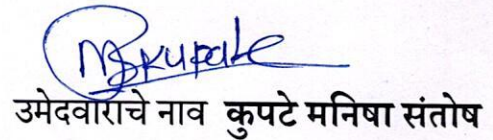 MSKupate
उमेदवाराचे नाव कुपटे मनिषा संतोष